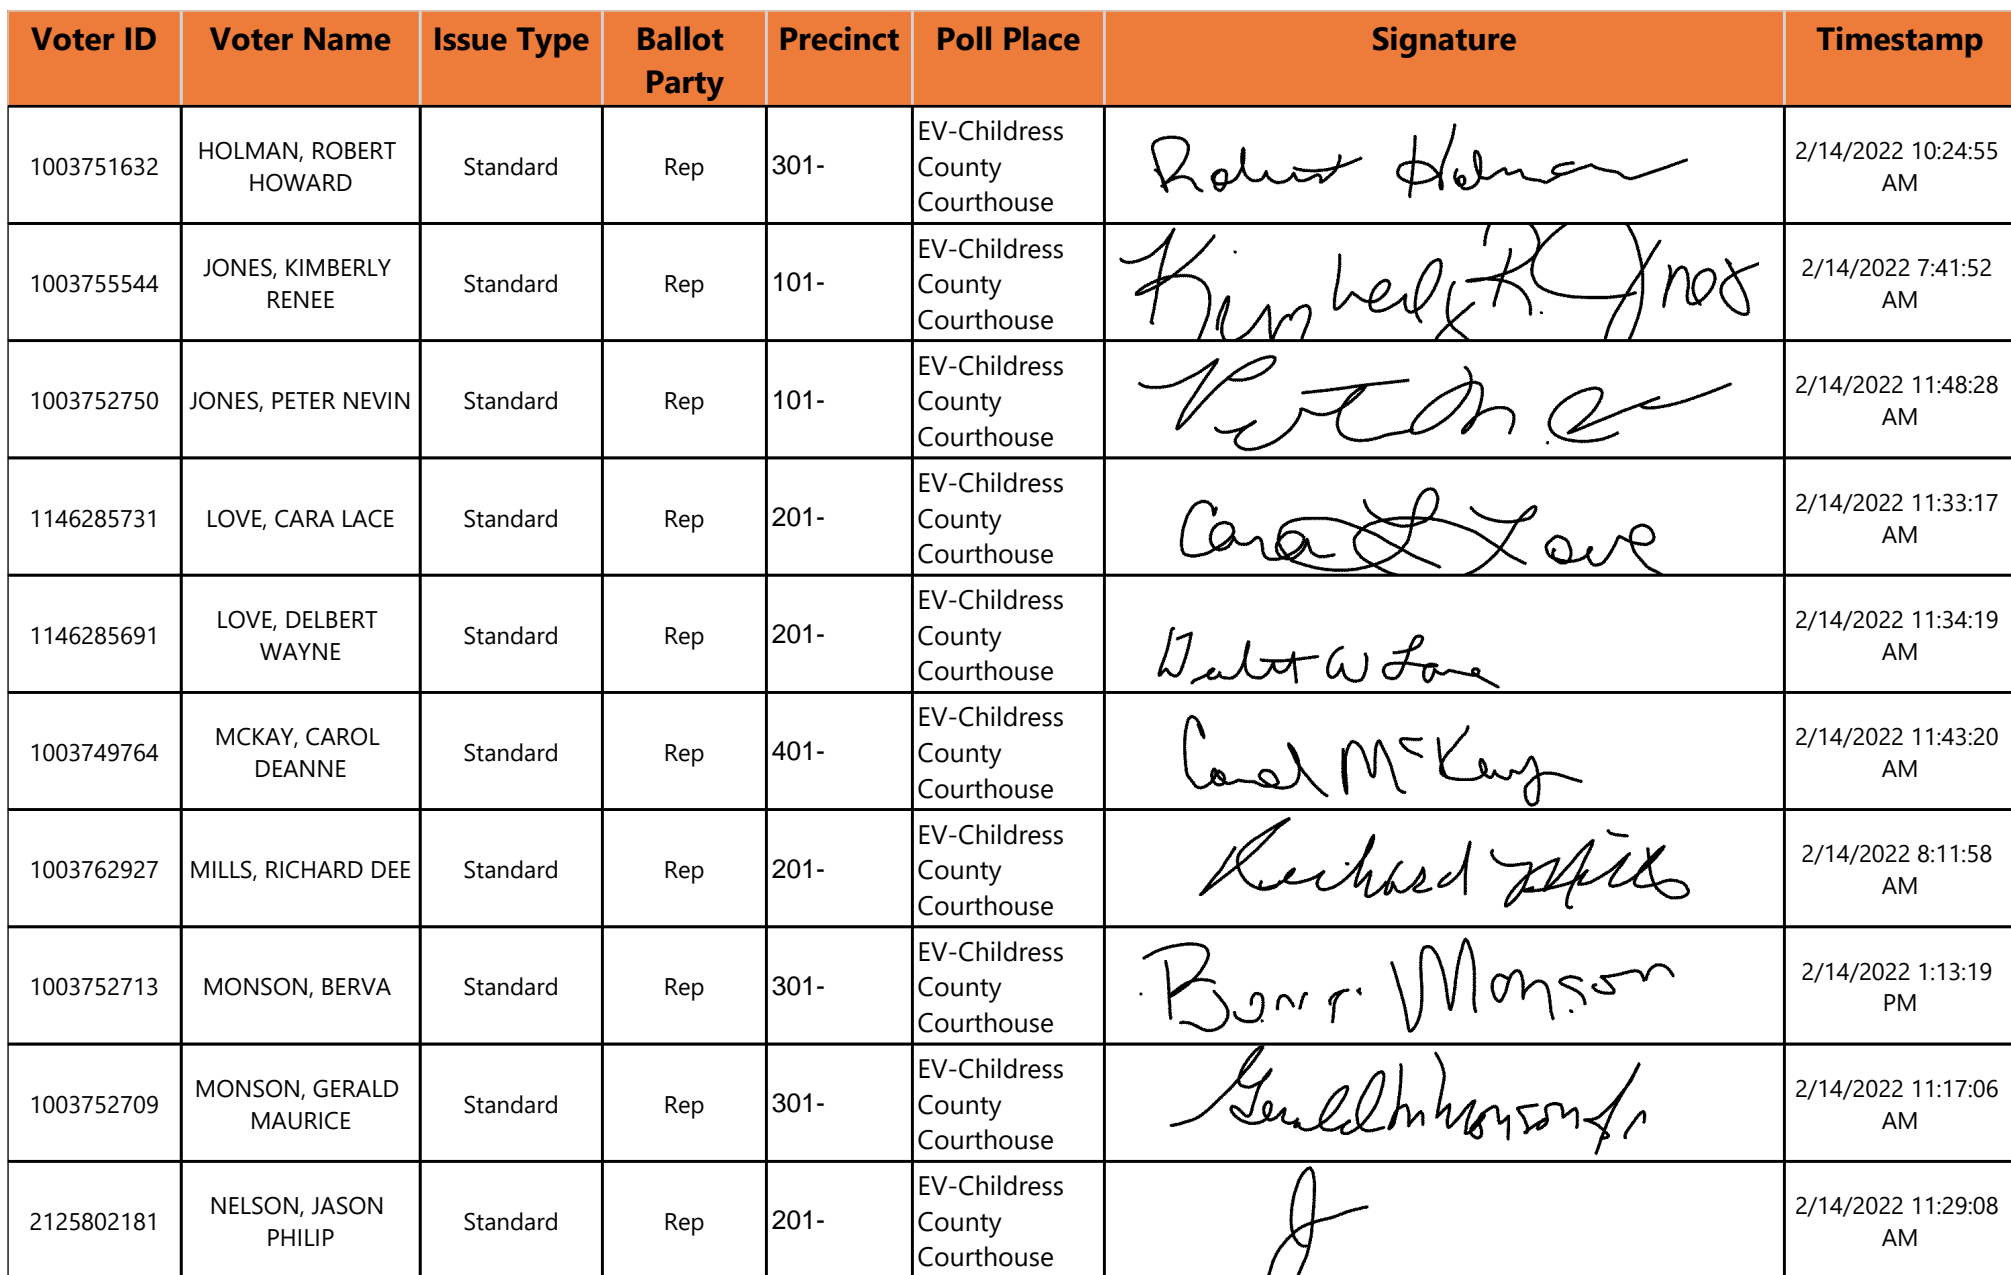 Voter ID Voter Name Issue Type Ballot Party Precinct Poll Place Signature Timestamp
1003751632 HOLMAN, ROBERT HOWARD Standard Rep 301- EV-Childress County Courthouse Robert Holman 2/14/2022 10:24:55 AM
1003755544 JONES, KIMBERLY RENEE Standard Rep 101- EV-Childress County Courthouse Kimberly R. Jones 2/14/2022 7:41:52 AM
1003752750 JONES, PETER NEVIN Standard Rep 101- EV-Childress County Courthouse 2/14/2022 11:48:28 AM
1146285731 LOVE, CARA LACE Standard Rep 201- EV-Childress County Courthouse Cara L Love 2/14/2022 11:33:17 AM
1146285691 LOVE, DELBERT WAYNE Standard Rep 201- EV-Childress County Courthouse Delbert W Love 2/14/2022 11:34:19 AM
1003749764 MCKAY, CAROL DEANNE Standard Rep 401- EV-Childress County Courthouse Carol McKay 2/14/2022 11:43:20 AM
1003762927 MILLS, RICHARD DEE Standard Rep 201- EV-Childress County Courthouse Richard Mills 2/14/2022 8:11:58 AM
1003752713 MONSON, BERVA Standard Rep 301- EV-Childress County Courthouse Monson 2/14/2022 1:13:19 PM
1003752709 MONSON, GERALD MAURICE Standard Rep 301- EV-Childress County Courthouse Gerald M Monson Jr 2/14/2022 11:17:06 AM
2125802181 NELSON, JASON PHILIP Standard Rep 201- EV-Childress County Courthouse J 2/14/2022 11:29:08 AM